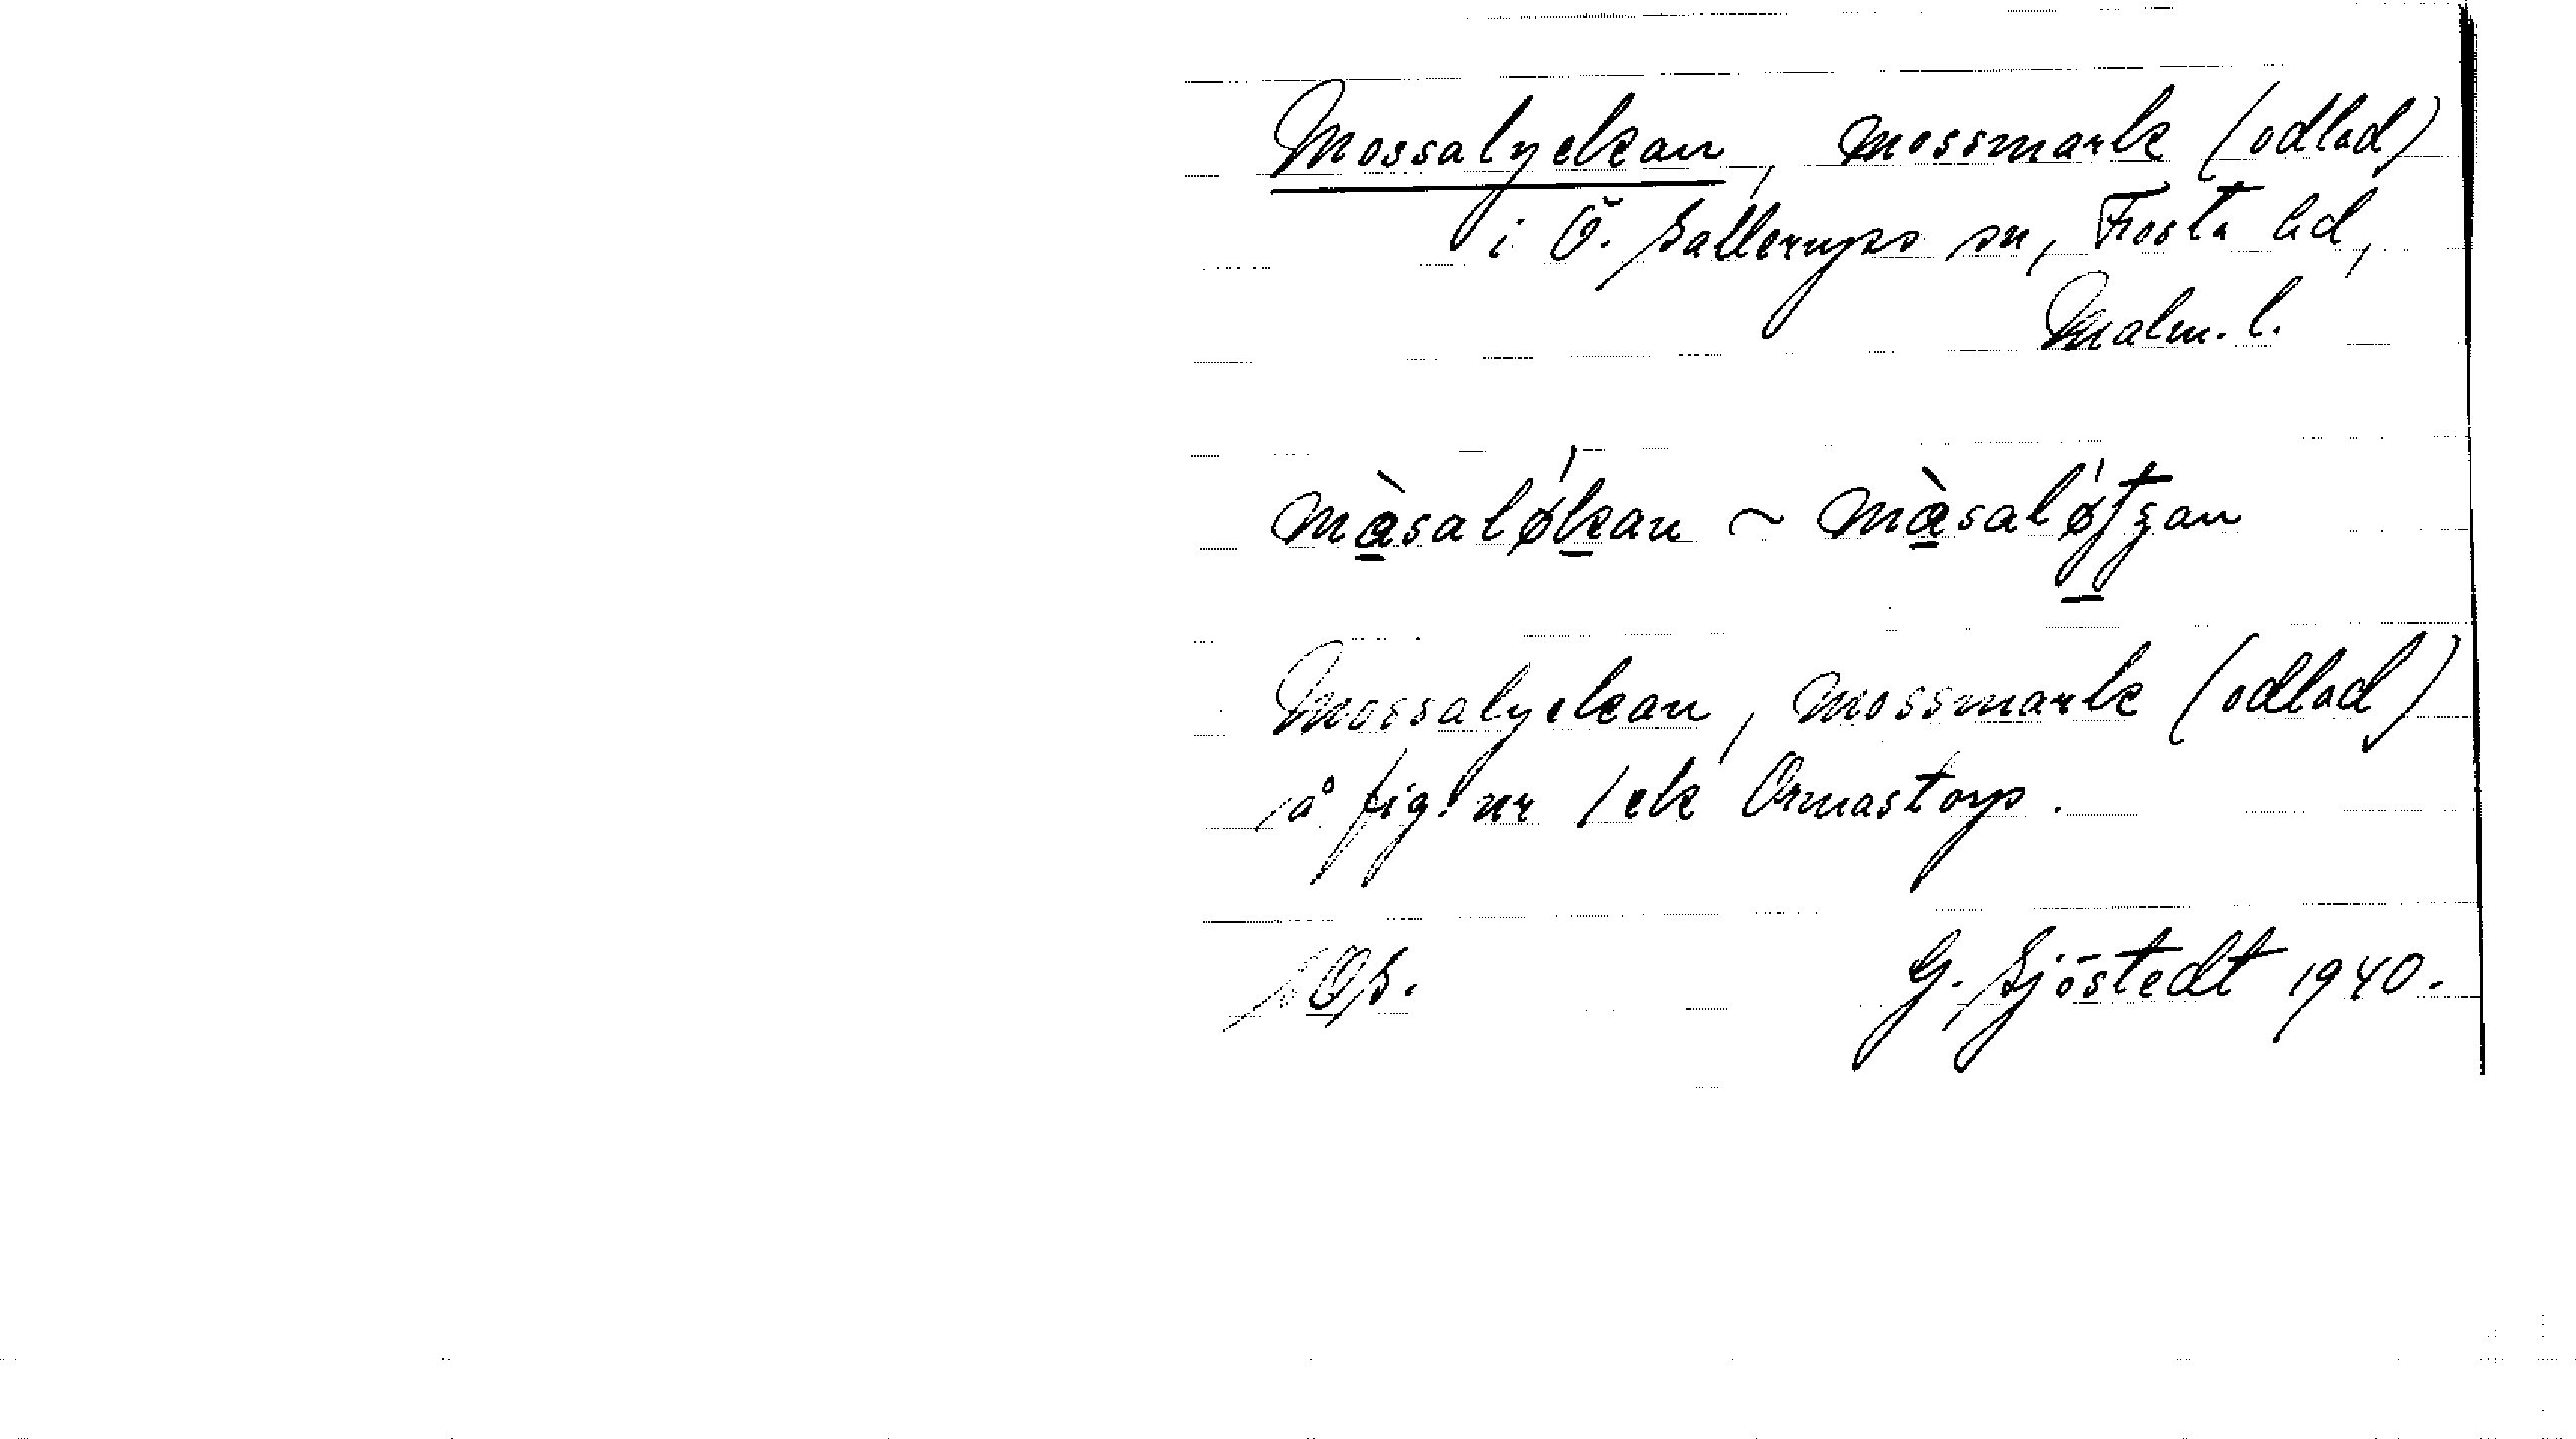 Mossalyckan, mossmark (odlad)
i Ö. Sallerups sn, Frosta hd,
Malm. l.
màsaløkan ~ màsaløtʒan
Mossalyckan, mossmark (odlad)
å fig. nr 1 ek Ormastorp.
G. Sjöstedt 1940.